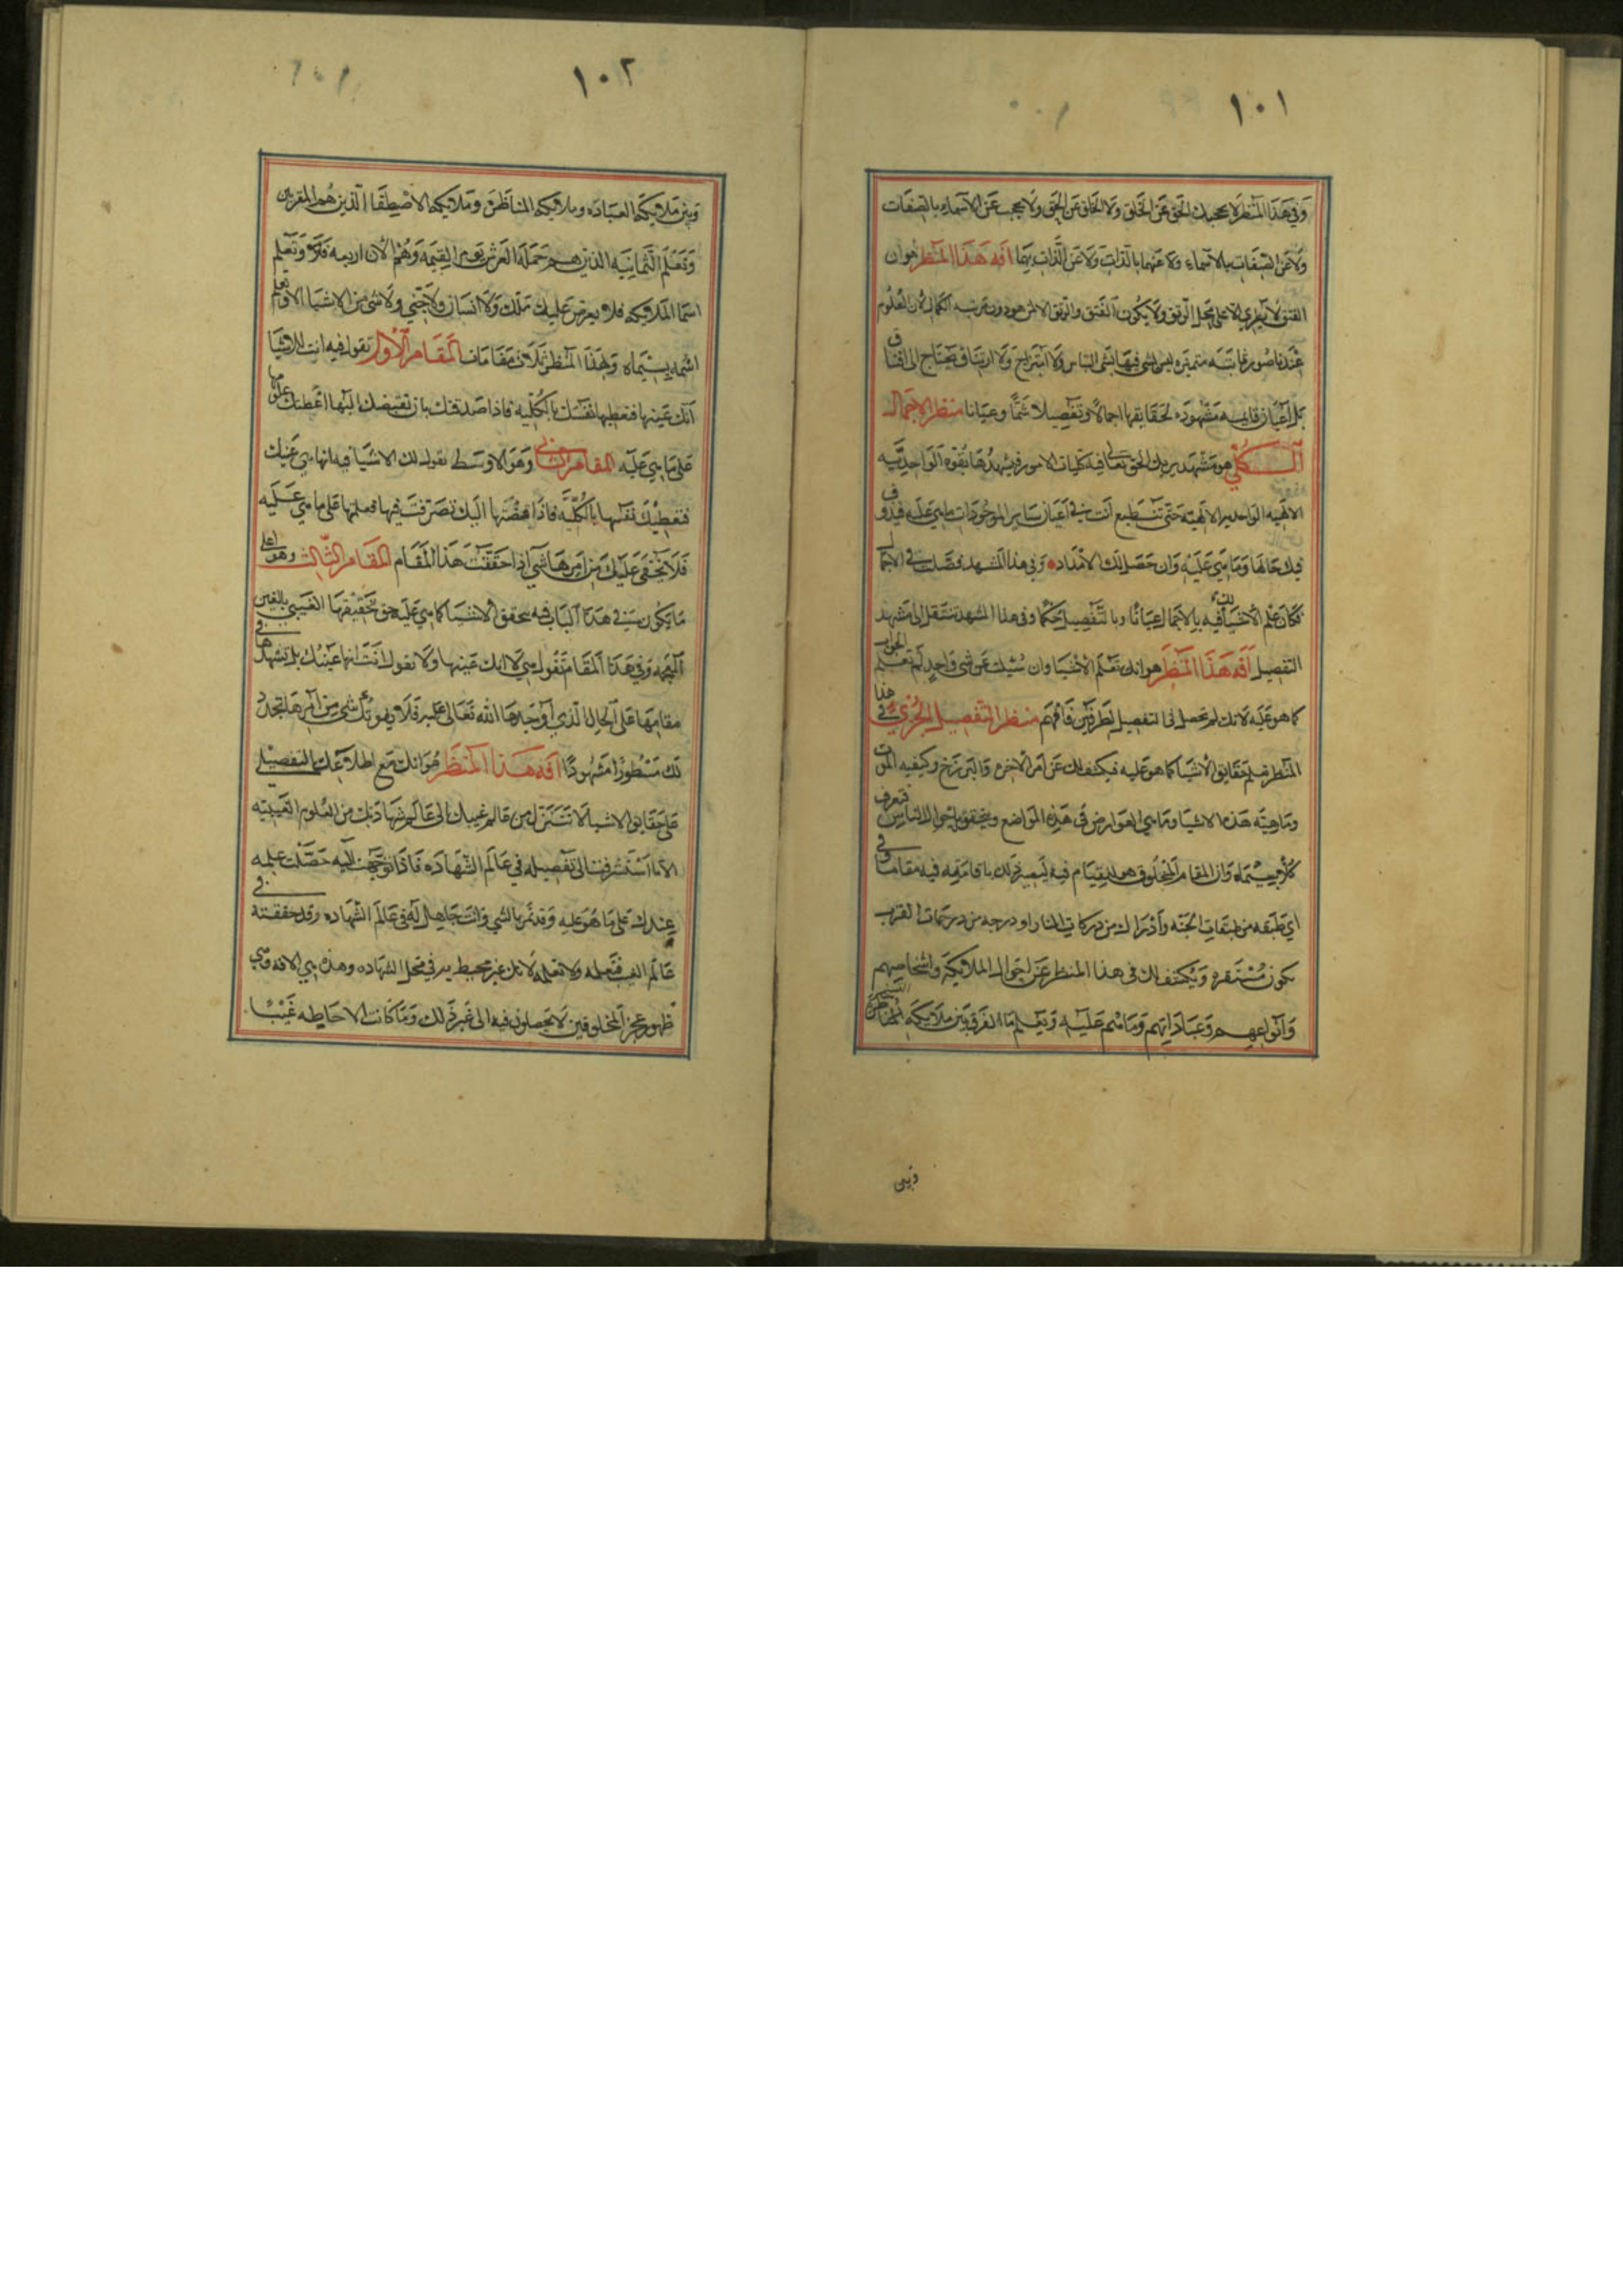 ١٠١
وفي هذا المنظر لا يحجبك الحق عن الخلق ولا الخلق عن الحق ولا يحجب عن الاسماء بالصفات
ولا عن الصفات بالاسماء ولا عنهما بالذات ولا عن الذات بهما افة هذا المنظر هو ان
الفتق لا يطرى الا على محل الرتق ولا يكون الفتق والرتق الا لمن هو دون مرتبه الكمال لان العلوم
عندنا صور متميزه ليس لشي فيها بشي التباس ولا امتزاج ولا ارتتاق يحتاج الى افتتاق
بل اعيان قايمه مشهوده لحقايقها اجمالا وتفصيلا شما وعيانا منظر الاجمال
الكلي هو مشهد يريك الحق تعالى فيه كليات الامور فيشهدها بقوه الواحديه
الالهيه حتى تنطبع انت في اعيان ساير الموجودات ما هي عليه
فيك حالها وما هي عليه وان حصل لك الامداد وفي هذا المشهد فصلت في الاجمال
فكان علم الاشيا لك فيه بالاجمال عيانا وبالتفصيل حكما وفي هذا المشهد تنتقل الى مشهد
التفصيل افة هذا المنظر هو انك تعلم الاشيا وان سئلت عن شي واحد لم تعلم الجواب
كما هو عليه لانك لم تحصل في التفصيل لطرفين فافهم منظر التفصيل الجزئي في هذا
المنظر تعلم حقايق الاشيا كما هو عليه فيكشف لك عن امر الاخره والبرزخ وكيفيه الموت
وماهيه هذه الاشيا وما هي العوارض في هذه المواضع ويتحقق باحوال الناس فتعرف
كلا بسيماه وان المقام المخلوق هو للقيام فيه
اي طبقه من طبقات الجنه وادراك من دركات النار او درجه من درجات القرب
يكون مستقره ويكشف لك في هذا المنظر عن احوال الملايكة واشخاصهم
وانواعهم وعباداتهم وما هم عليه وتعلم ما الفرق بين ملايكة
وبين
١٠٢
وبين ملايكه العباده وملايكه المناظر وملايكه الاصطفا الذين هم المقربين
وتعلم الثمانيه الذين هم حملة العرش يوم القيمه وهم الان اربعه فلا وتعلم
اسما الملايكه فلا يعرض عليك ملك ولا انسان ولا جني ولا شي من الاشيا الا وتعلم
اسمه بسيماه ولهذا المنظر ثلاث مقامات المقام الاول تقول فيه انت للاشيا
انك عينها فتعطيها نفسك بالكليه فاذا صدقتك بان تقبضك اليها اعطتك علومها
على ما هي عليه المقام الثاني وهو الاوسط تقول لك الاشيا فيه انها هي عينك
فتعطيك نفسها بالكليه فاذا قبضتها اليك تصرفت فيها فعلمتها على ما هي عليه
فلا يخفى عليك من امرها شي اذا حققت هذا المقام المقام الثالث وهو اعلى
ما يكون في هذا الباب فيه تتحقق الاشيا كما هي عليه حق تحقيقها الغيبي بالعين
وفي هذا المقام تقول هي لا انك عينها ولا تقول انت انها عينك بل تشهدها في
مقامها على الحال الذي اوجدها الله تعالى عليه فلا يفوتك شي من امرها تجد
لك مسطورا مشهودا افة هذا المنظر هو انك مع اطلاعك بالتفصيلي
على حقايق الاشيا لا تتنزل من عالم غيبك الى عالم شهادتك من العلوم الغيبيه
الا ما استشرفت الى تفصيله في عالم الشهاده فاذا توجهت اليه حصلت علمه
عندك على ما هو عليه وقد تمر بالشي وانت جاهل له في عالم الشهاده وقد حققته في
عالم الغيب فتعلمه ولا تعلمه لانك غير محيط به في محل الشهاده وهذه هي الافه وهي
ظهور عجز المخلوقين لا يحصلون فيه الى غير ذلك وما كانت الاحاطه غيبا